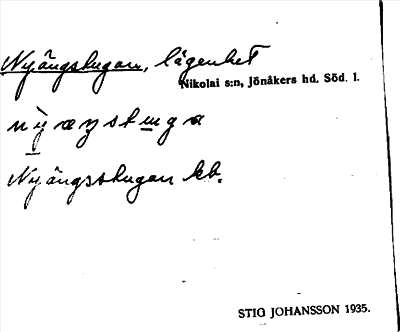 Nyängstugan, lägenhet
Nikolai s:n, Jönåkers hd. Söd. l.
Nyängsstugan kb.
STIG JOHANSSON 1935.